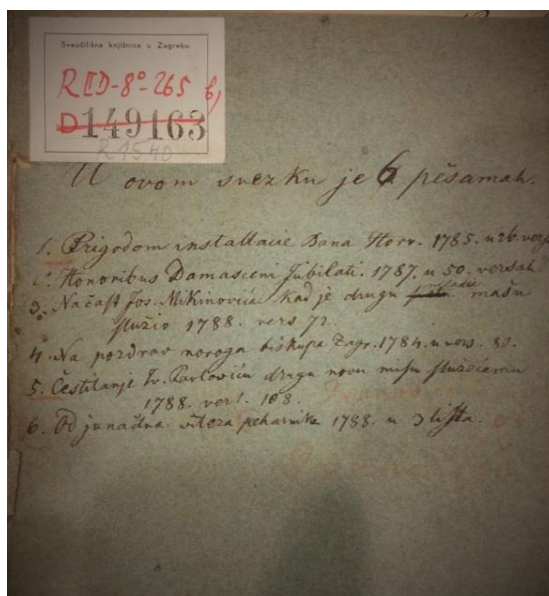 Sveučilišna knjižnica u Zagrebu
R II D-8º-265 b,
D149163
R 1540
U ovom svezku je 6 pěsamah.
1. Prigodom installacie Bana Horv. 1785. u 26. vers
2. Honoribus Damasceni Jubilati. 1787. u 50. versah
3. Na čast Jos. Mikinovića kad je drugu mladu mašu
služio 1788. vers 72.
4. Na pozdrav novoga biskupa Zagr. 1784. u vers. 80.
5. Čestitanje Iv. Pavloviću drugu novu mašu služećemu
1788. vers. 108.
6. Od junačna viteza peharnika 1788. u 3 lista.